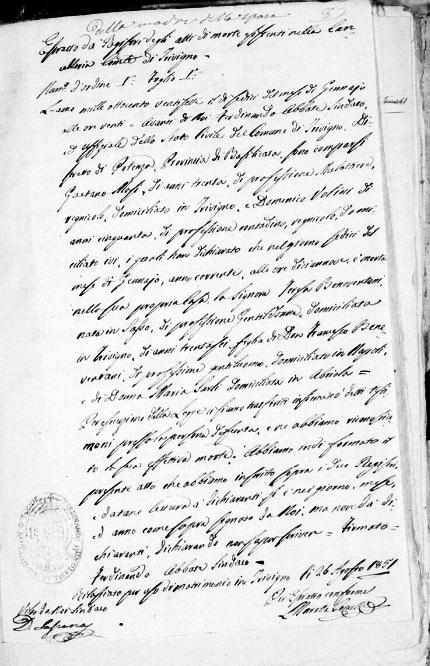 Della madre della sposa
Estratto da Registri degli atti di morte esistenti nella Can-
celleria Comle di Trivigno
Num. d'ordine 1. foglio 1.
L'anno mille ottocento ventisette il dì sedici del mese di Gennajo
alle ore venti Avanti di Noi Ferdinando Abbate Sindaco,
ed Uffiziale dello Stato Civile del Comune di Trivigno, Di-
stretto di Potenza, Provincia di Basilicata, sono comparsi
Gaetano di anni trenta, di professione
regnicolo, domiciliato in Trivigno, e Domenico Volini di
anni cinquanta di professione contadino, regnicolo, domi
ciliato ivi, i quali hanno dichiarato che nel giorno sedici del
mese di Gennajo, anno corrente, alle ore diciannove, è morta
nella sua propria casa la Signora Teresa Beneventani,
nata in Sasso, di professione Gentildonna, domiciliata
in Trivigno, di anni figlia di Don Francesco Bene
ventani, di professione gentiluomo, domiciliato in Napoli,
e di Donna Maria domiciliata in Abriola =
Per esecuzione della Legge ci siamo trasferiti insieme coi detti testi
moni presso la persona defunta, e ne abbiamo riconosciu
to la sua effettiva morte. Abbiamo indi formato il
presente atto che abbiamo inscritto sopra i due Registri,
e datane lettura a' dichiaranti si è nel giorno, mese,
ed anno come sopra segnato da Noi, ma non da' di-
chiaranti, dichiarando non saper scrivere = Firmato =
Ferdinando Abbate Sindaco =
Rilasciato per uso di matrimonio in Trivigno li 26 Agosto 1851
Visto da Noi Sindaco
Per Estratto conforme